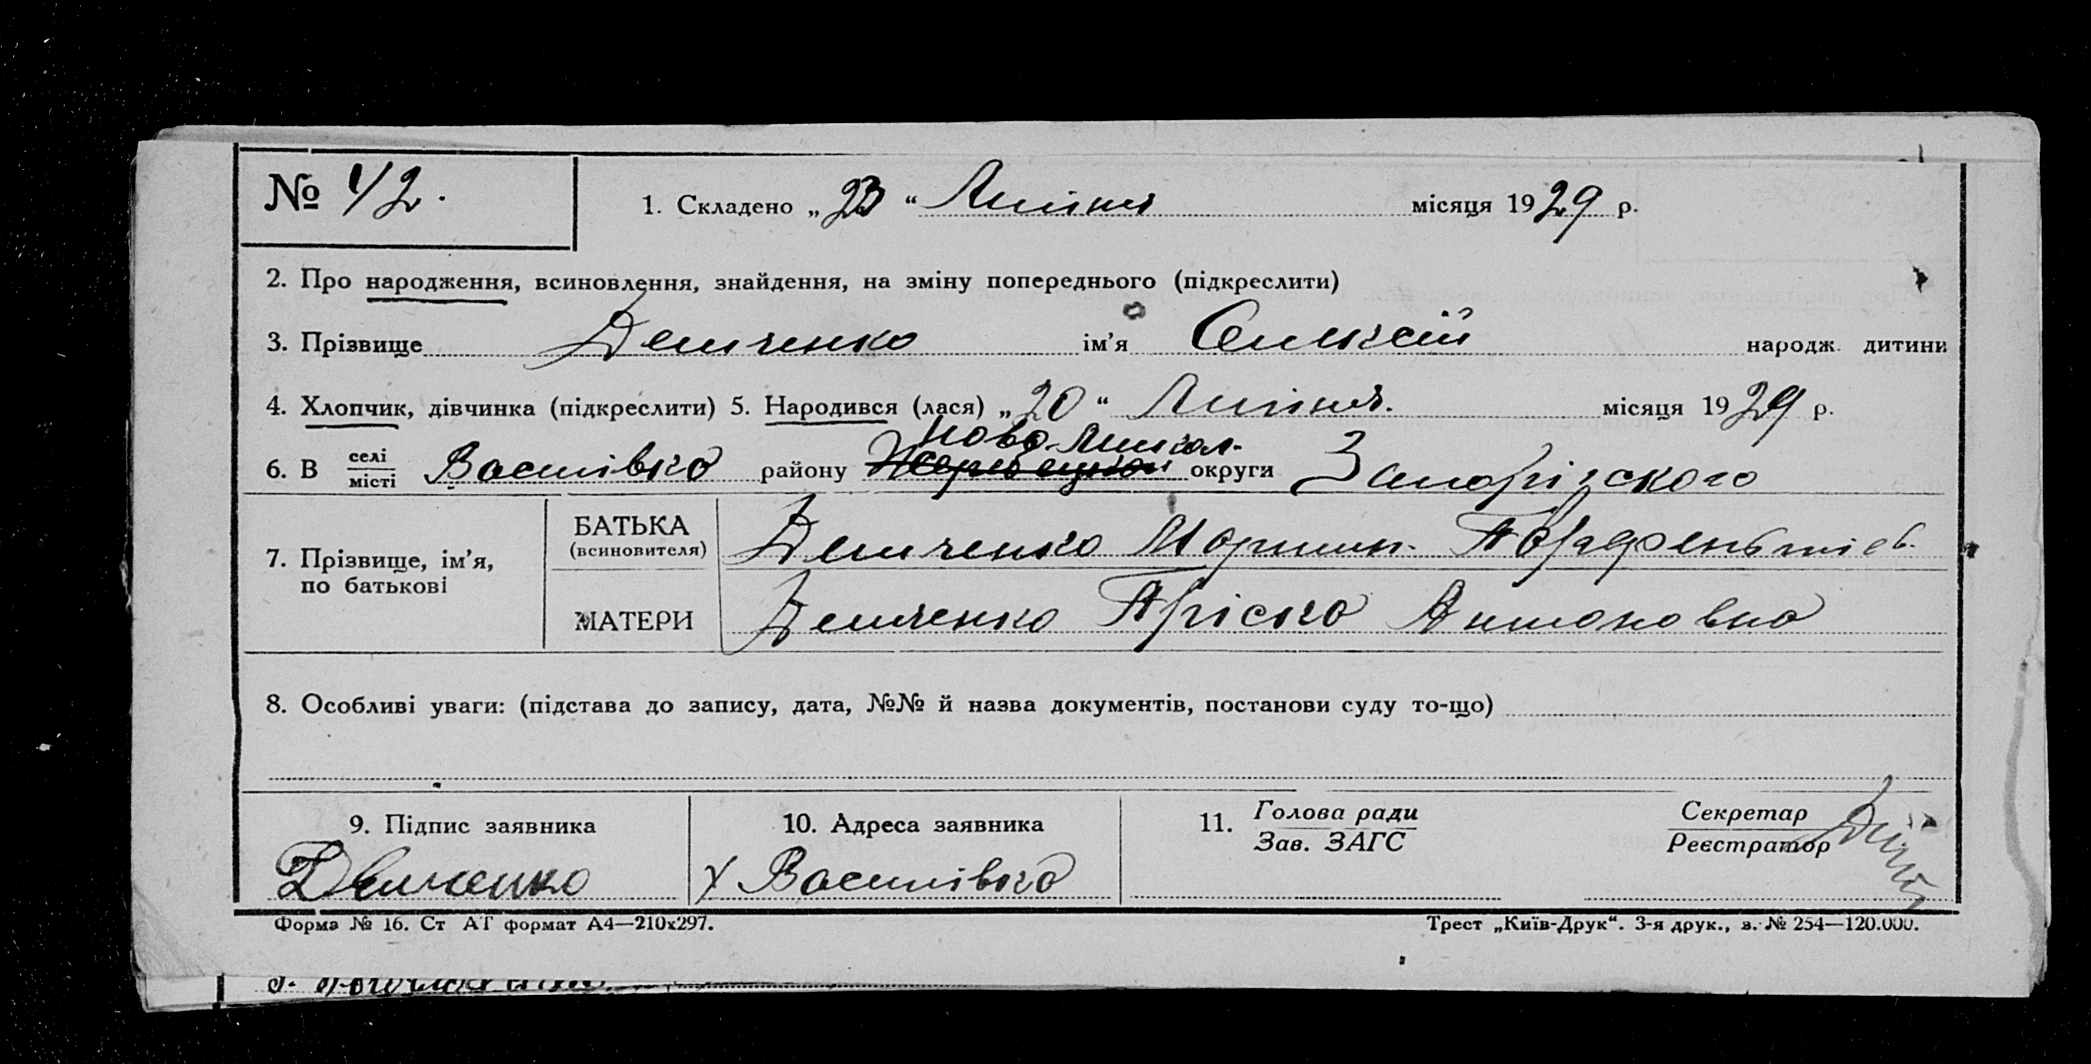 № 42.
1. Складено „23“ Липня місяця 1929 р.
2. Про народження, всиновлення, знайдення, на зміну попереднього (підкреслити)
3. Прізвище Демченко ім’я Олексій народж. дитини
4. Хлопчик, дівчинка (підкреслити) 5. Народився (лася) „20“ Липня. місяця 1929 р.
Ново Микол.
6. В селі/місті Василівка району округи Запорізского
7. Прізвище, ім’я, по батькові
БАТЬКА (всиновителя) Демченко Парфентіев.
МАТЕРИ Демченко Пріська Антоновна
8. Особливі уваги: (підстава до запису, дата, №№ й назва документів, постанови суду то-що)
9. Підпис заявника
Демченко
10. Адреса заявника
х Василівка
11. Голова ради
Зав. ЗАГС
Секретар
Реєстратор
Форма № 16. Ст АТ формат А4—210х297.
Трест „Київ-Друк“. 3-я друк., з. № 254—120.000.